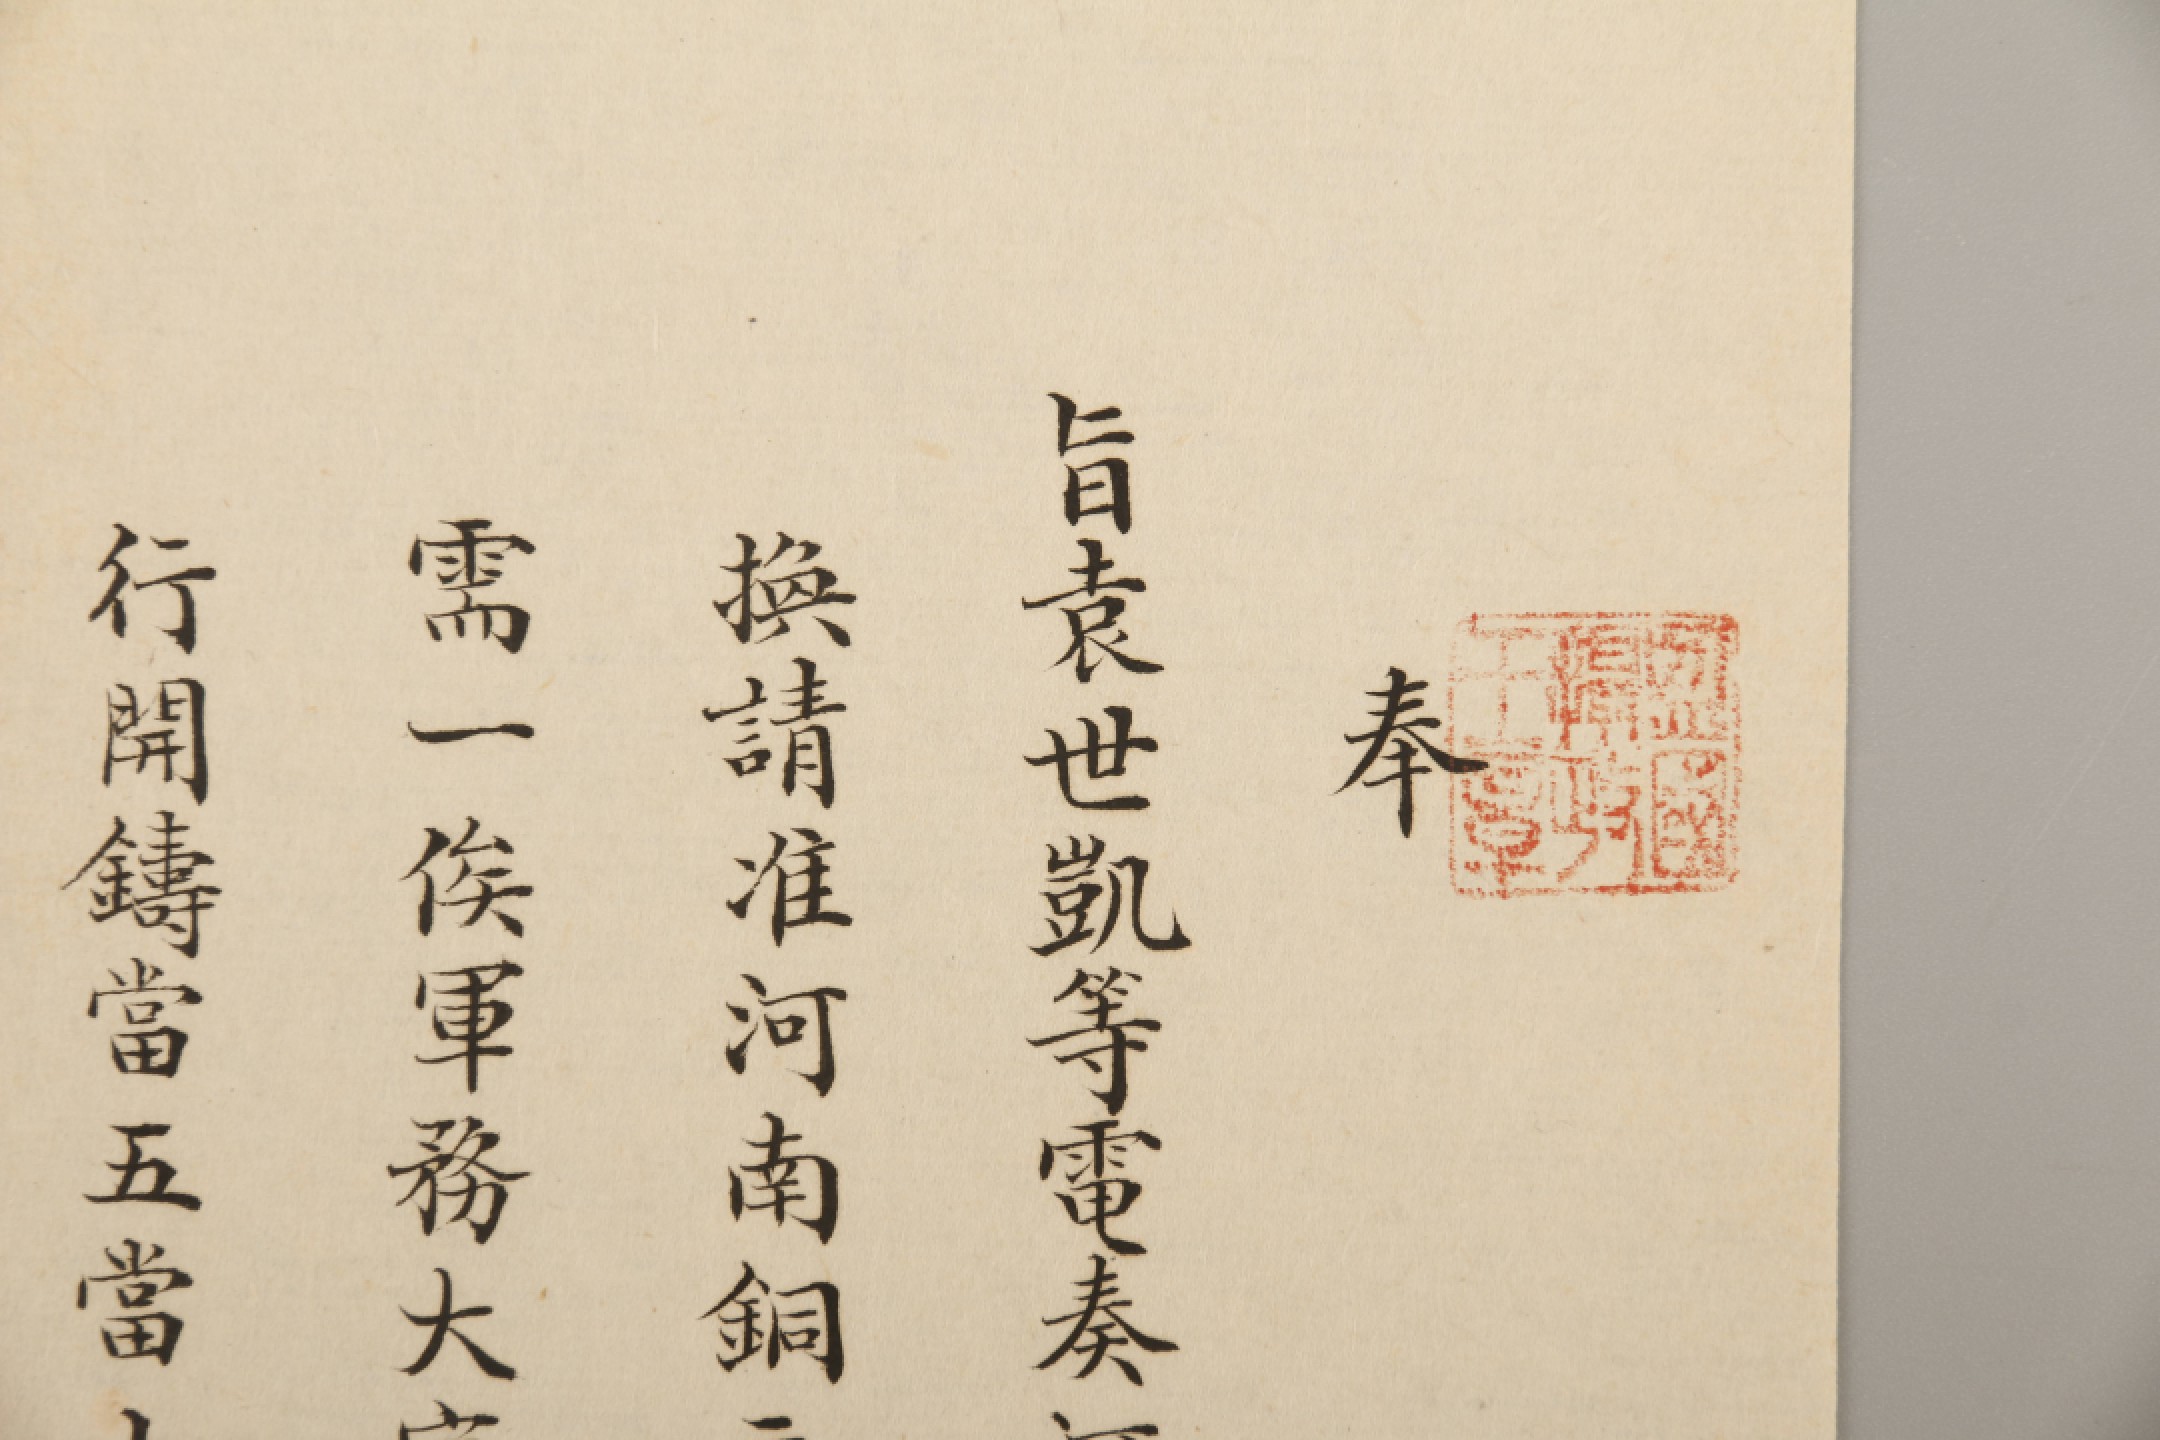 奉
旨袁世凱等電奏
撫請准河南銅
需一俟軍務大
行開鑄當五當